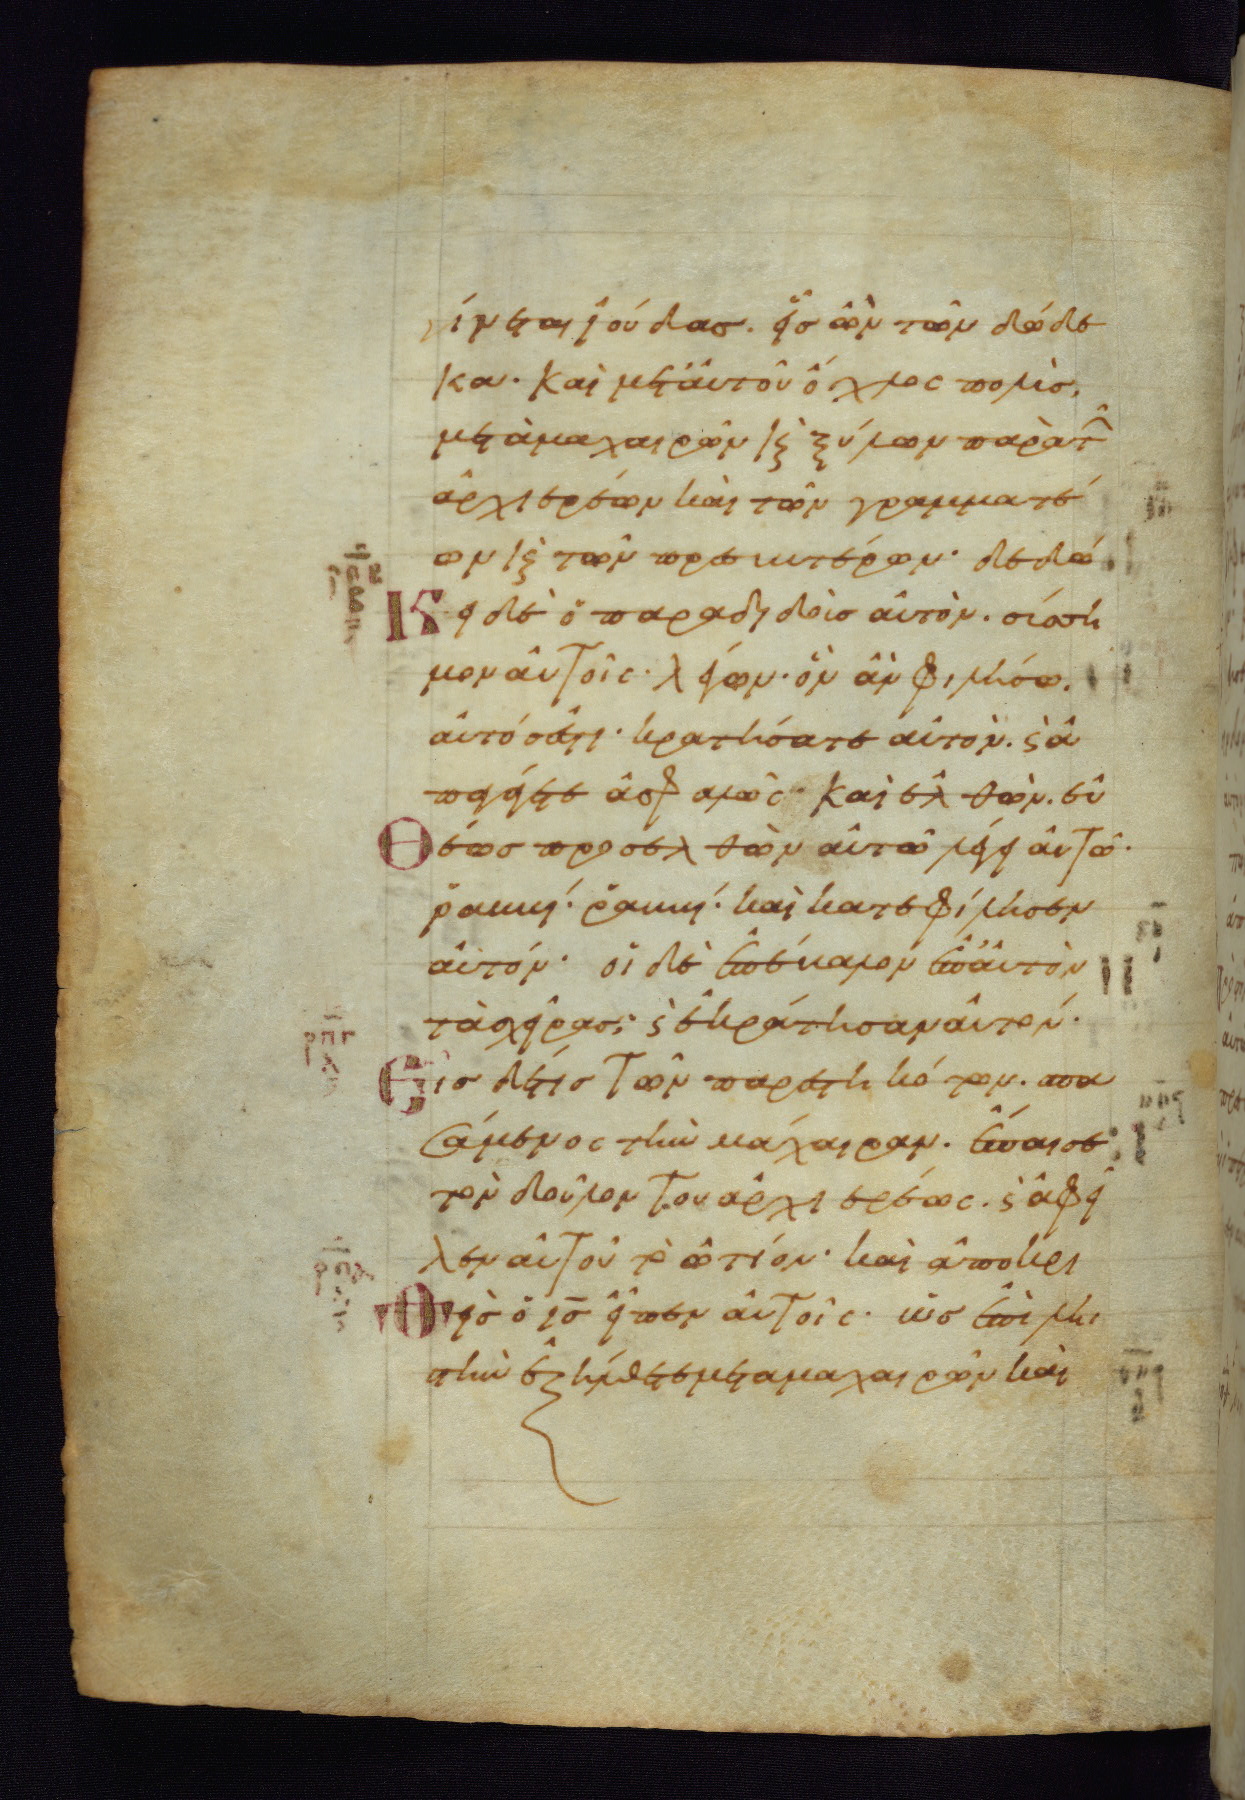 γίνεται ἰούδας. εἷς ὢν τῶν δώδε
κα. καὶ μετ' αὐτοῦ ὄχλος πολὺς,
μετὰ μαχαιρῶν κ ξύλων παρὰ τῶν
ἀρχιερέων καὶ τῶν γραμματέ
ων κ τῶν πρεσβυτέρων. δεδώ
Κει δὲ ὁ παραδιδοὺς αὐτὸν. σύσση
μον αὐτοῖς. λέγων. ὃν ἂν φιλήσω.
αὐτός ἐστι. κρατήσατε αὐτὸν. ϗ ἀ
παγάγετε ἀσφαλῶς. καὶ ἐλθὼν. εὐ
Θέως προσελθὼν αὐτῶ λέγει αὐτῶ.
ῥαββί. ῥαββί. καὶ κατεφίλησεν
αὐτόν. οἱ δὲ ἐπέβαλον ἐπ' αὐτὸν
τὰς χεῖρας. ϗ ἐκράτησαν αὐτόν.
Εἷς δέ τις τῶν παρεστηκότων. σπα
σάμενος τὴν μάχαιραν. ἔπαισε
τὸν δοῦλον τοῦ ἀρχιερέως. ϗ ἀφεῖ
λεν αὐτοῦ τὸ ὠτίον. καὶ ἀποκρι
Θεὶς ὁ ις εἶπεν αὐτοῖς. ὡς ἐπὶ λη
στὴν ἐξήλθετε μετὰ μαχαιρῶν καὶ